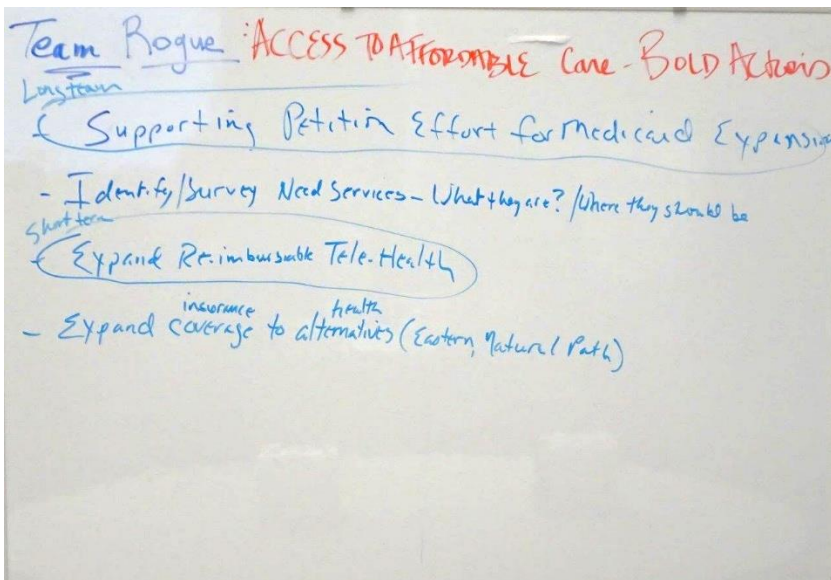 Team Rogue: ACCESS TO AFFORDABLE Care - BOLD Actions
Long team
- Supporting Petition Effort for Medicaid Expansion
- Identify/Survey Need Services - What they are? /Where they should be
Short term
- Expand Re-imbursable Tele-Health
- Expand insurance coverage to health alternatives (Eastern, Natural Path)